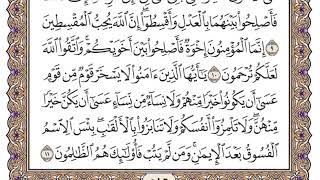 فَأَصْلِحُوا۟ بَيْنَهُمَا بِٱلْعَدْلِ وَأَقْسِطُوٓا۟ ۖ إِنَّ ٱللَّهَ يُحِبُّ ٱلْمُقْسِطِينَ
٩ إِنَّمَا ٱلْمُؤْمِنُونَ إِخْوَةٌ فَأَصْلِحُوا۟ بَيْنَ أَخَوَيْكُمْ ۚ وَٱتَّقُوا۟ ٱللَّهَ
لَعَلَّكُمْ تُرْحَمُونَ ١٠ يَـٰٓأَيُّهَا ٱلَّذِينَ ءَامَنُوا۟ لَا يَسْخَرْ قَوْمٌ مِّن قَوْمٍ
عَسَىٰٓ أَن يَكُونُوا۟ خَيْرًا مِّنْهُمْ وَلَا نِسَآءٌ مِّن نِّسَآءٍ عَسَىٰٓ أَن يَكُنَّ خَيْرًا
مِّنْهُنَّ ۖ وَلَا تَلْمِزُوٓا۟ أَنفُسَكُمْ وَلَا تَنَابَزُوا۟ بِٱلْأَلْقَـٰبِ ۖ بِئْسَ ٱلِٱسْمُ
ٱلْفُسُوقُ بَعْدَ ٱلْإِيمَـٰنِ ۚ وَمَن لَّمْ يَتُبْ فَأُو۟لَـٰٓئِكَ هُمُ ٱلظَّـٰلِمُونَ ١١